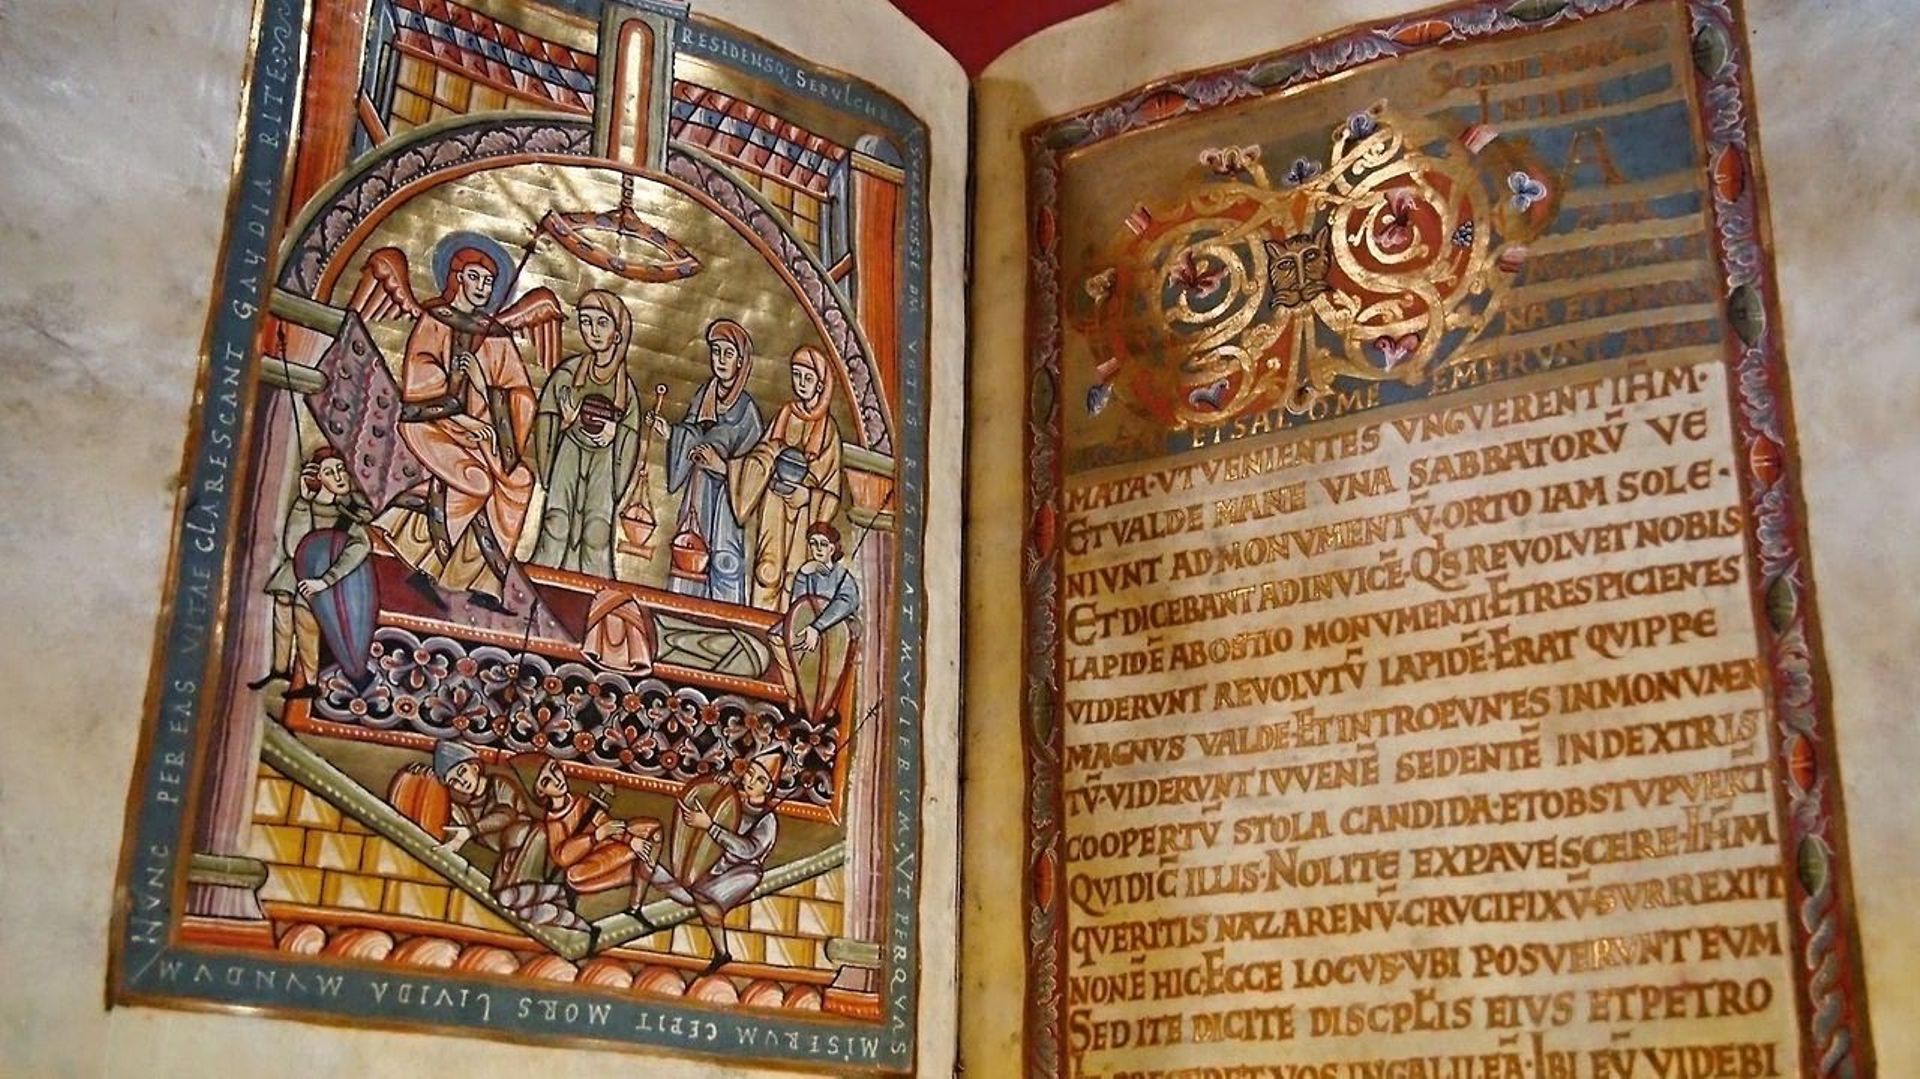 RESIDENSQ; SEPVLCHRI
MVLIEBVM. VT PERQVAS
MISERVM CEPIT MORS LIVIDA MVNDVM
NVNC PER EAS VITAE CLARESCANT GAVDIA RITE
ET SALOME EMERVNT
MATA·VT VENIENTES VNGVERENT IHM·
ET VALDE MANE VNA SABBATORV̄ VE
NIVNT AD MONVMENTV̄·ORTO IAM SOLE·
ET DICEBANT ADINVICĒ·QIS REVOLVET NOBIS
LAPIDĒ AB OSTIO MONVMENTI·ET RESPICIENTES
VIDERVNT REVOLVTV̄ LAPIDĒ·ERAT QVIPPE
MAGNVS VALDE·ET INTROEVNTES IN MONVMEN
TV̄·VIDERVNT IVVENĒ SEDENTĒ IN DEXTRIS
COOPERTV̄ STOLA CANDIDA·ET OBSTVPVERT̄
QVI DIC̄ ILLIS·NOLITE EXPAVESCERE·IHM
QVERITIS NAZARENV̄·CRVCIFIXV̄·SVRREXIT
NON Ē HIC·ECCE LOCVS·VBI POSVERVNT EVM
SED ITE DICITE DISCPLIS EIVS ET PETRO
VOS IN GALILEĀ·IBI EV̄ VIDEBI